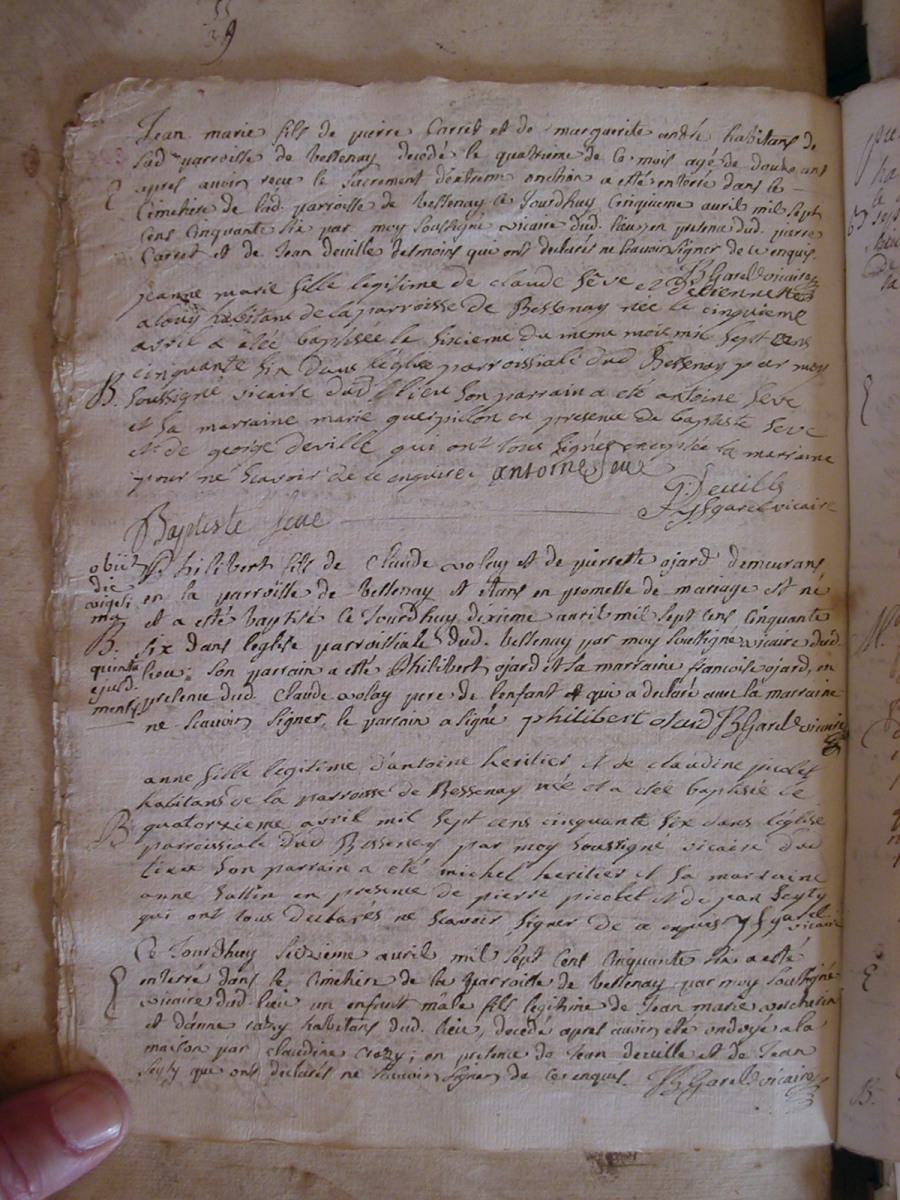 55
39
Jean marie fils de pierre Carret et de marguerite andré habitans de
lad. parroisse de Bessenay decedé le quatrieme de ce mois agé de douze ans
apres avoir reçu le sacrement d'extreme onction a esté enterré dans le
Cimetiere de lad. parroisse de Bessenay ce Jourdhuy Cinquieme avril mil sept
Cens Cinquante six par moy soussigné vicaire dud. lieu, en presence dud. pierre
Carret et de Jean deville tesmoins qui ont declaré ne scavoir signer de ce enquis
BGarel vicaire
jeanne marie fille legitime de claude seve et d'Etiennette
habitans de la parroisse de Bessenay née le cinquieme
avril a étée baptisée le sixieme du meme mois mil sept cens
cinquante six dans l'eglise parroissiale dud Bessenay par moy
B. soussigné vicaire dud. lieu son parrain a été antoine seve
et sa marraine marie guerpillon en presence de baptiste seve
et de george deville qui ont tous signés exceptée la marraine
pour ne scavoir de ce enquise antoine seve
G. Deville
garel vicaire
Baptiste seve
obiit
die
vigesi
ma
B.
quinta
ejusd.
mensis
Philibert fils de Claude volay et de pierrette ojard demeurans
en la parroisse de Bessenay et étans en promesse de mariage est né
et a esté baptisé ce Jourdhuy dixieme avril mil sept cens cinquante
six dans l'eglise parroissiale dud. bessenay par moy soussigné vicaire dud.
lieu; son parrain a esté Philibert ojard et sa marraine francoise ojard, en
presence dud. Claude volay pere de l'enfant qui a declaré avec la marraine
ne scavoir signer, le parrain a signé philibert ojard BGarel vicaire
anne fille legitime d'antoine heritier et de claudine picolet
habitans de la parroisse de Bessenay née et a étée baptisée le
B quatorzieme avril mil sept cens cinquante six dans l'eglise
parroissiale dud Bessenay par moy soussigné vicaire dud
lieu son parrain a été michel heritier et sa marraine
anne en presence de pierre picolet et de jean seyty
qui ont tous declarés ne scavoir signer de ce enquis garel
vicaire
Ce Jourdhuy seizieme avril mil sept cent cinquante six a esté
enterré dans le Cimetiere de la parroisse de bessenay par moy soussigné
vicaire dud. lieu un enfant mâle fils legitime de Jean marie vercherin
et d'anne habitans dud. lieu, decedé apres avoir été ondoyé a la
maison par claudine crozy; en presence de Jean deville et de Jean
seyty qui ont declaré ne scavoir signer de ce enquis. BGarel vicaire
B.